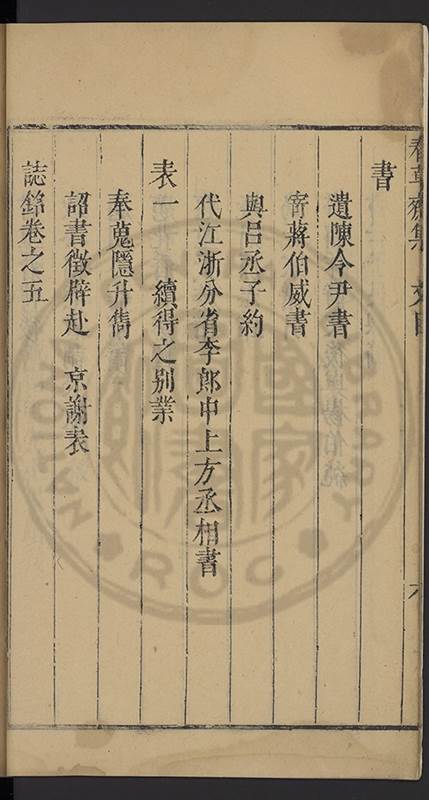 春草齋集 文目 六
書
遺陳令尹書
寄蔣伯威書
與呂丞子約
代江浙分省李郎中上方丞相書
表一 續得之别業
奉蒐隱升儁
詔書徵辟赴 京謝表
誌銘卷之五